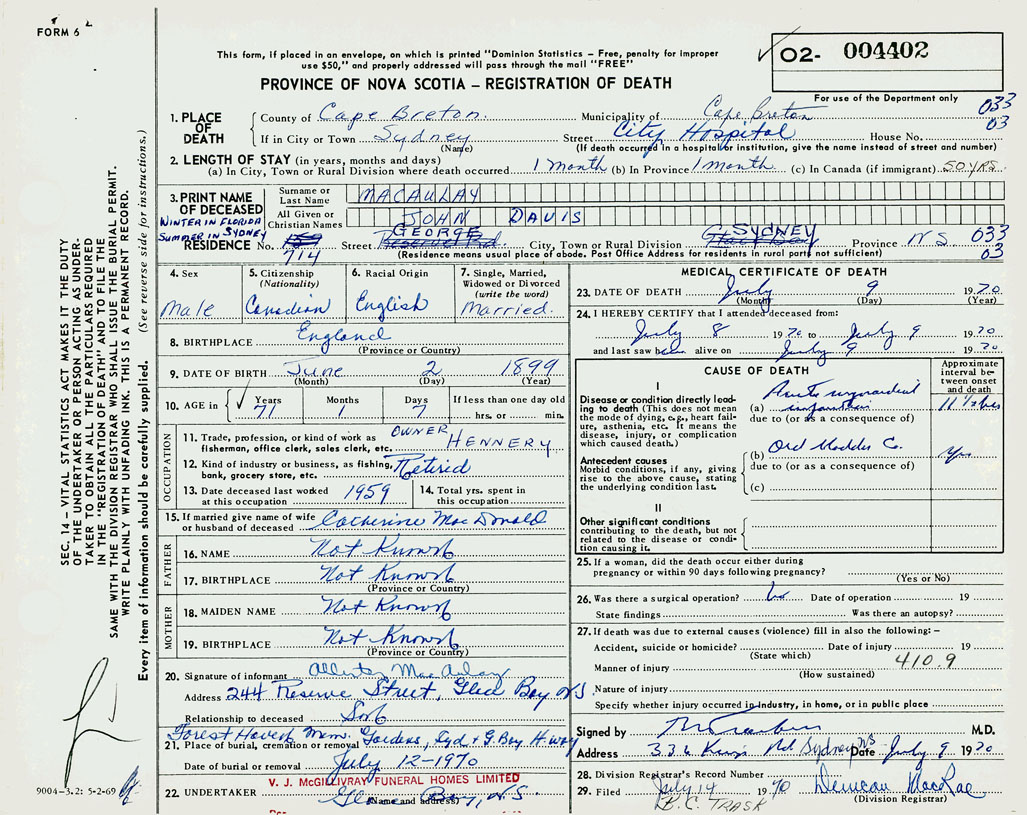 FORM 6
This form, if placed in an envelope, on which is printed "Dominion Statistics – Free, penalty for improper
use $50," and properly addressed will pass through the mail "FREE"
PROVINCE OF NOVA SCOTIA – REGISTRATION OF DEATH
O2- 004402
For use of the Department only
033
03
1. PLACE OF DEATH
County of Cape Breton. Municipality of Cape Breton
If in City or Town Sydney Street City Hospital House No.
(Name) (If death occurred in a hospital or institution, give the name instead of street and number)
2. LENGTH OF STAY (in years, months and days)
(a) In City, Town or Rural Division where death occurred 1 Month (b) In Province 1 Month (c) In Canada (if immigrant) 50 YRS.
3. PRINT NAME OF DECEASED
Surname or Last Name MACAULAY
All Given or Christian Names JOHN DAVIS
WINTER IN FLORIDA
SUMMER IN SYDNEY
RESIDENCE No. 714 Street GEORGE City, Town or Rural Division SYDNEY Province NS 033
03
(Residence means usual place of abode. Post Office Address for residents in rural parts not sufficient)
4. Sex
Male
5. Citizenship
(Nationality)
Canadian
6. Racial Origin
English
7. Single, Married,
Widowed or Divorced
(write the word)
Married.
8. BIRTHPLACE England
(Province or Country)
9. DATE OF BIRTH June 2 1899
(Month) (Day) (Year)
10. AGE in Years Months Days If less than one day old
71 1 7 hrs. or min.
OCCUPATION
11. Trade, profession, or kind of work as
fisherman, office clerk, sales clerk, etc. OWNER HENNERY
12. Kind of industry or business, as fishing,
bank, grocery store, etc. Retired
13. Date deceased last worked
at this occupation 1959
14. Total yrs. spent in
this occupation
15. If married give name of wife
or husband of deceased Catherine MacDonald
FATHER
16. NAME Not Known
17. BIRTHPLACE Not Known
(Province or Country)
MOTHER
18. MAIDEN NAME Not Known
19. BIRTHPLACE Not Known
(Province or Country)
20. Signature of informant
Address 244 Reserve Street, Glace Bay NS
Relationship to deceased Son
Forest Haven Mem. Gardens, Syd & G. Bay H'way
21. Place of burial, cremation or removal
Date of burial or removal July 12-1970
V. J. McGILLIVRAY FUNERAL HOMES LIMITED
22. UNDERTAKER Glace Bay, N.S.
(Name and address)
MEDICAL CERTIFICATE OF DEATH
23. DATE OF DEATH July 9 1970
(Month) (Day) (Year)
24. I HEREBY CERTIFY that I attended deceased from:
July 8 1970 to July 9 1970
and last saw alive on July 9 1970
CAUSE OF DEATH
Approximate
interval be-
tween onset
and death
I
Disease or condition directly lead-
ing to death (This does not mean
the mode of dying, e.g., heart fail-
ure, asthenia, etc. It means the
disease, injury, or complication
which caused death.)
(a) Acute myocardial
infarction
11 ½ hrs
due to (or as a consequence of)
Antecedent causes
Morbid conditions, if any, giving
rise to the above cause, stating
the underlying condition last.
(b) Old
yrs
due to (or as a consequence of)
(c)
II
Other significant conditions
contributing to the death, but not
related to the disease or condi-
tion causing it.
25. If a woman, did the death occur either during
pregnancy or within 90 days following pregnancy?
(Yes or No)
26. Was there a surgical operation? No Date of operation 19
State findings Was there an autopsy?
27. If death was due to external causes (violence) fill in also the following: –
Accident, suicide or homicide? Date of injury 19
(State which)
410.9
Manner of injury
(How sustained)
Nature of injury
Specify whether injury occurred in industry, in home, or in public place
Signed by M.D.
Address 336 Kings Rd Sydney NS Date July 9 1970
28. Division Registrar's Record Number
29. Filed July 14 1970 Duncan MacRae
B.C. TRASK (Division Registrar)
SEC. 14 – VITAL STATISTICS ACT MAKES IT THE DUTY
OF THE UNDERTAKER OR PERSON ACTING AS UNDER-
TAKER TO OBTAIN ALL THE PARTICULARS REQUIRED
IN THE "REGISTRATION OF DEATH" AND TO FILE THE
SAME WITH THE DIVISION REGISTRAR WHO SHALL ISSUE THE BURIAL PERMIT.
WRITE PLAINLY WITH UNFADING INK, THIS IS A PERMANENT RECORD.
Every item of information should be carefully supplied. (See reverse side for instructions.)
9004-3.2: 5-2-69